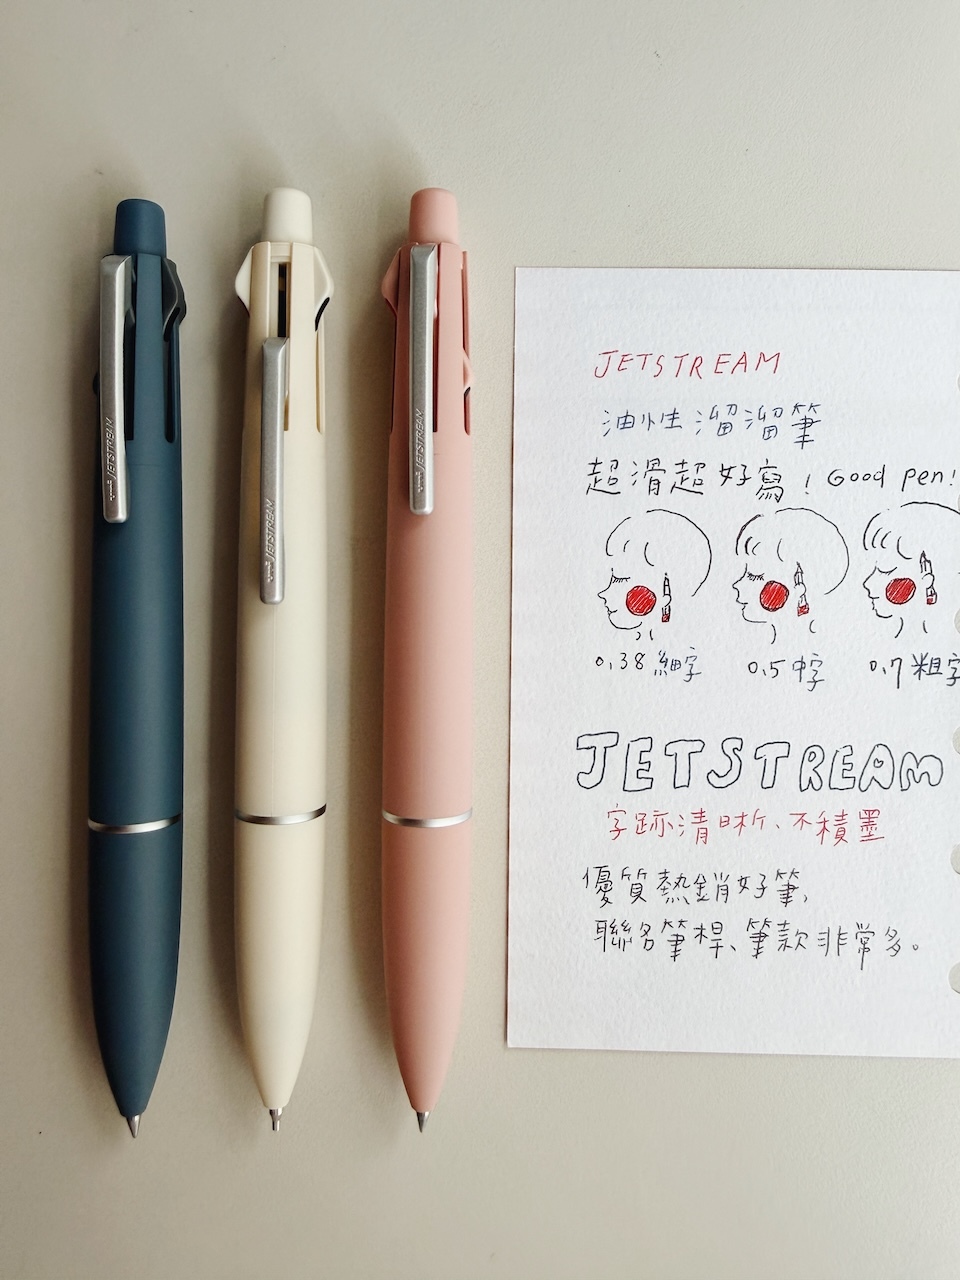 JETSTREAM
JETSTREAM
JETSTREAM
JETSTREAM
油性溜溜筆
超滑超好寫！Good pen!
0.38 細字
0.5 中字
0.7 粗字
JETSTREAM
字跡清晰、不積墨
優質熱銷好筆,
聯名筆桿、筆款非常多。